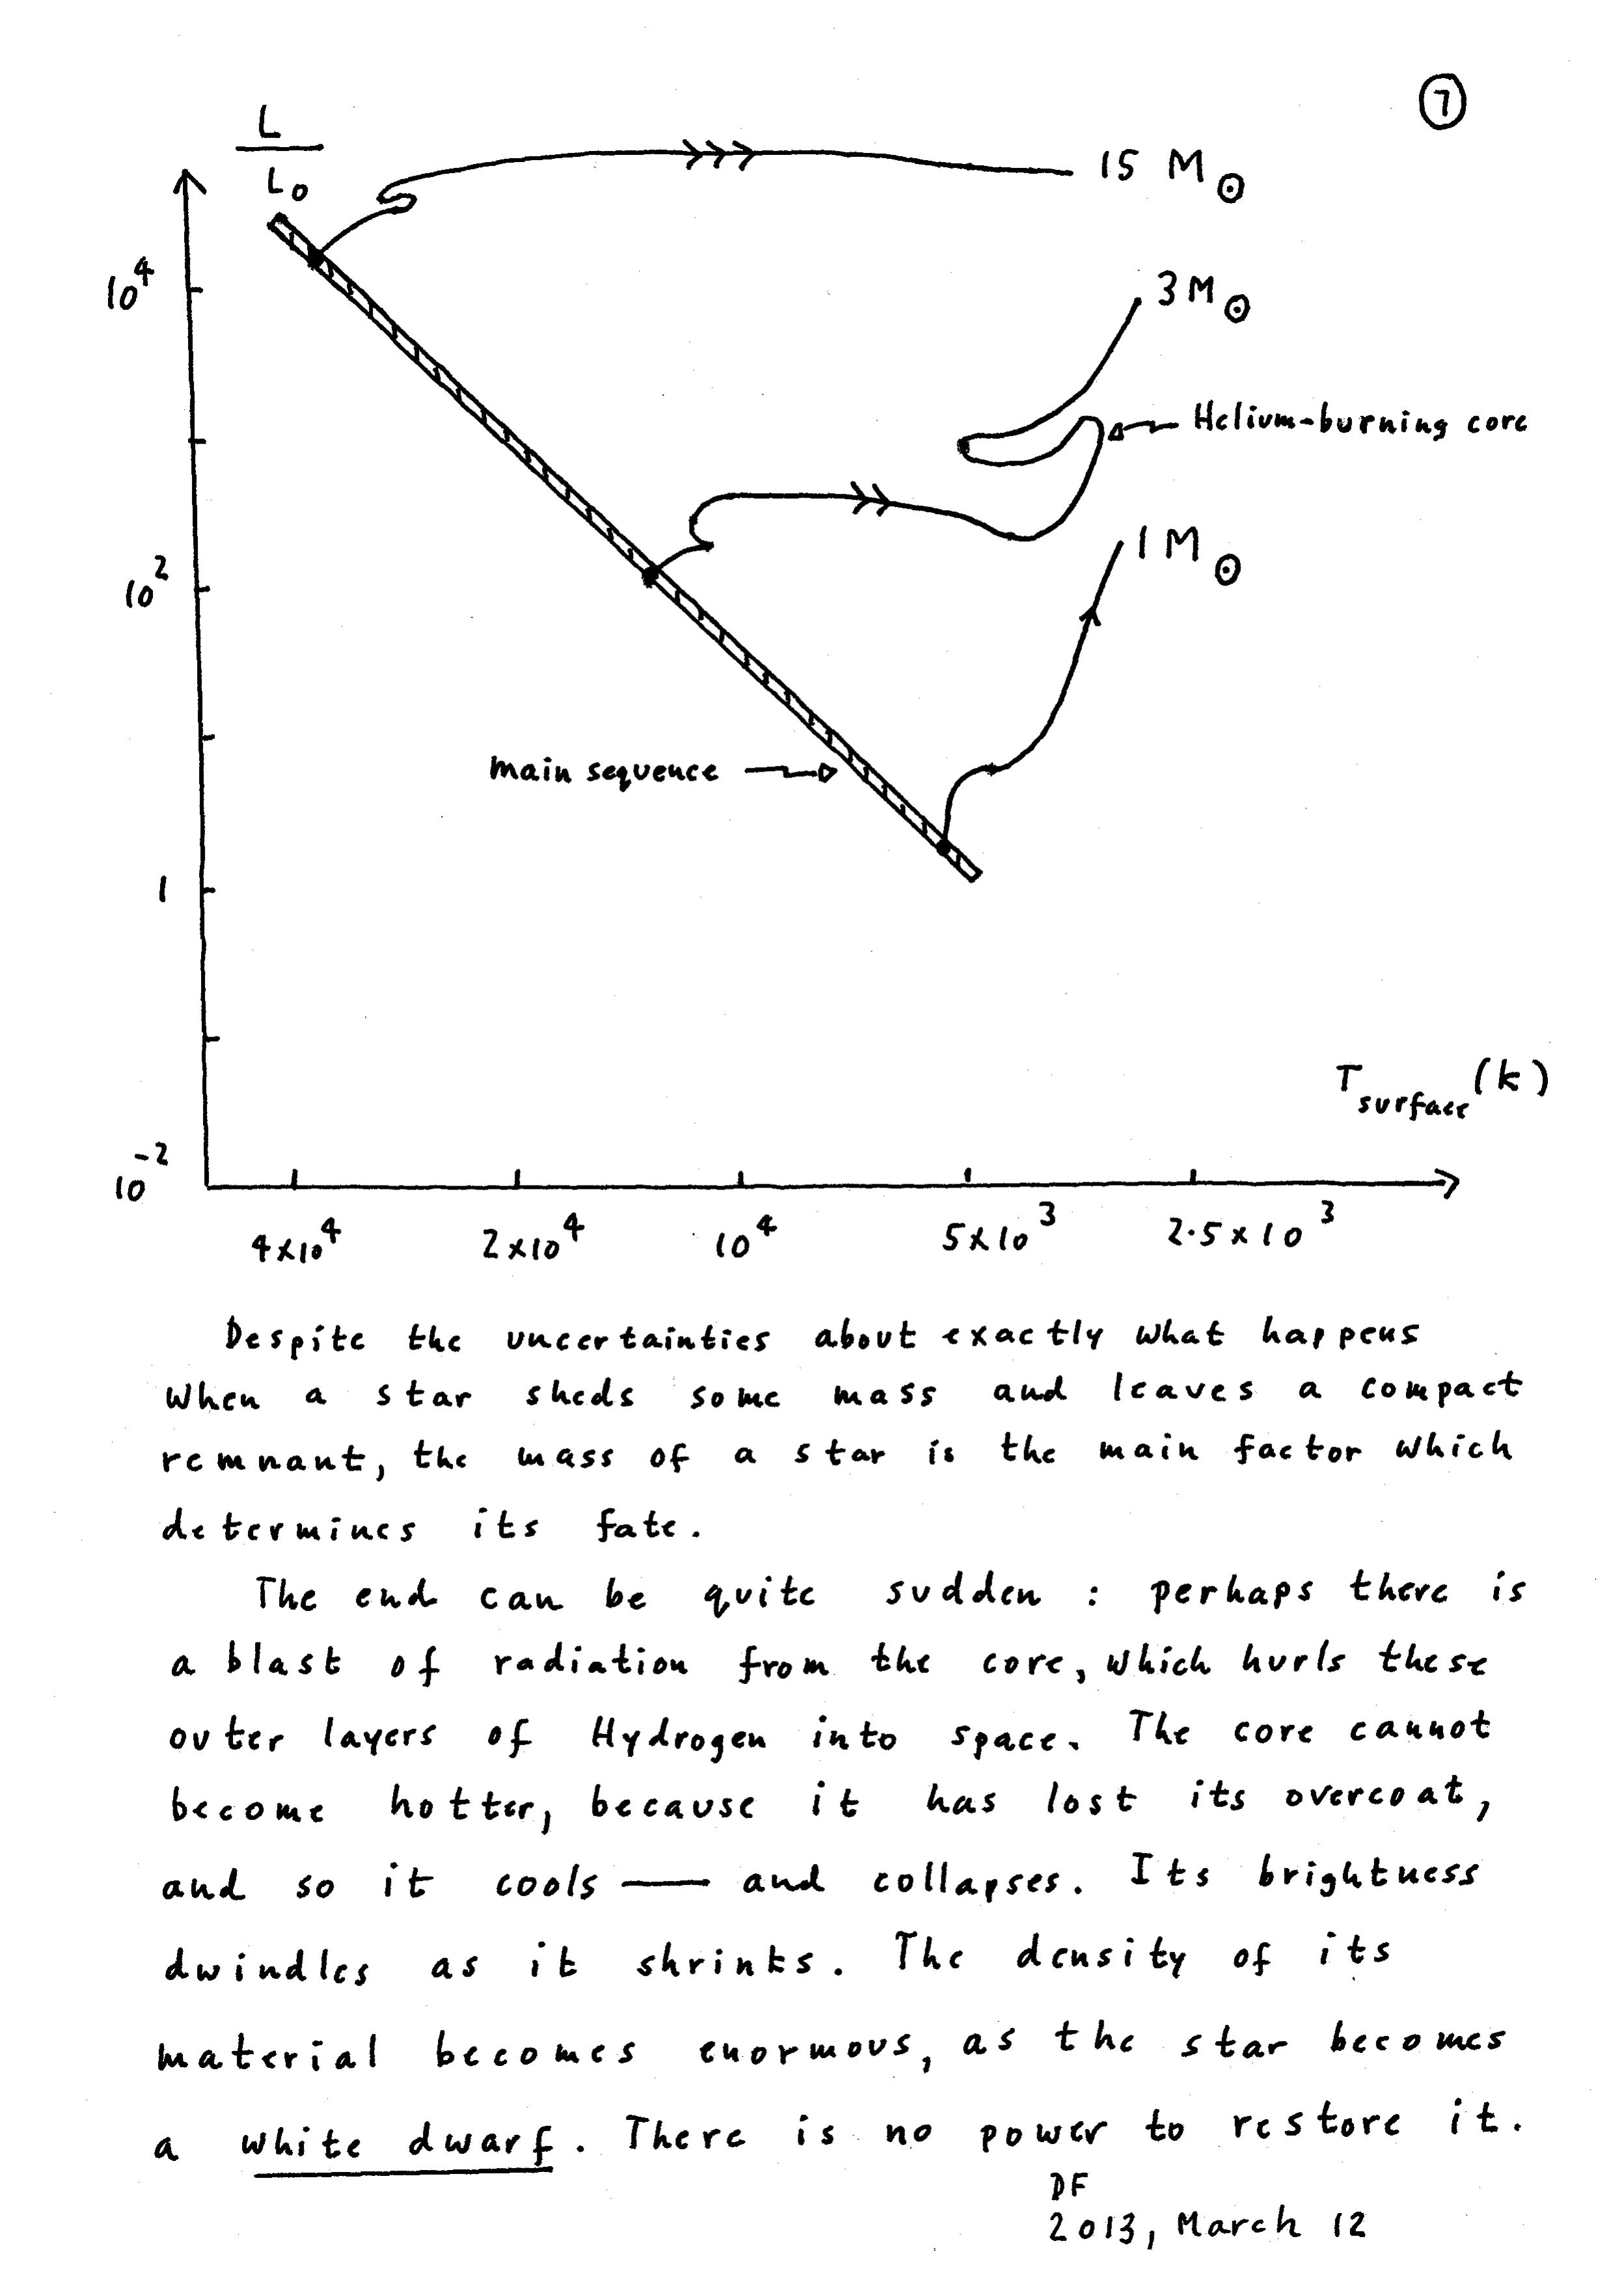 7
L
L₀
15 M☉
10⁴
3M☉
Helium-burning core
1M☉
10²
main sequence
1
T surface (k)
10⁻²
4x10⁴ 2x10⁴ 10⁴ 5x10³ 2.5x10³
Despite the uncertainties about exactly what happens
when a star sheds some mass and leaves a compact
remnant, the mass of a star is the main factor which
determines its fate.
The end can be quite sudden : perhaps there is
a blast of radiation from the core, which hurls these
outer layers of Hydrogen into space. The core cannot
become hotter, because it has lost its overcoat,
and so it cools — and collapses. Its brightness
dwindles as it shrinks. The density of its
material becomes enormous, as the star becomes
a white dwarf. There is no power to restore it.
DF
2013, March 12